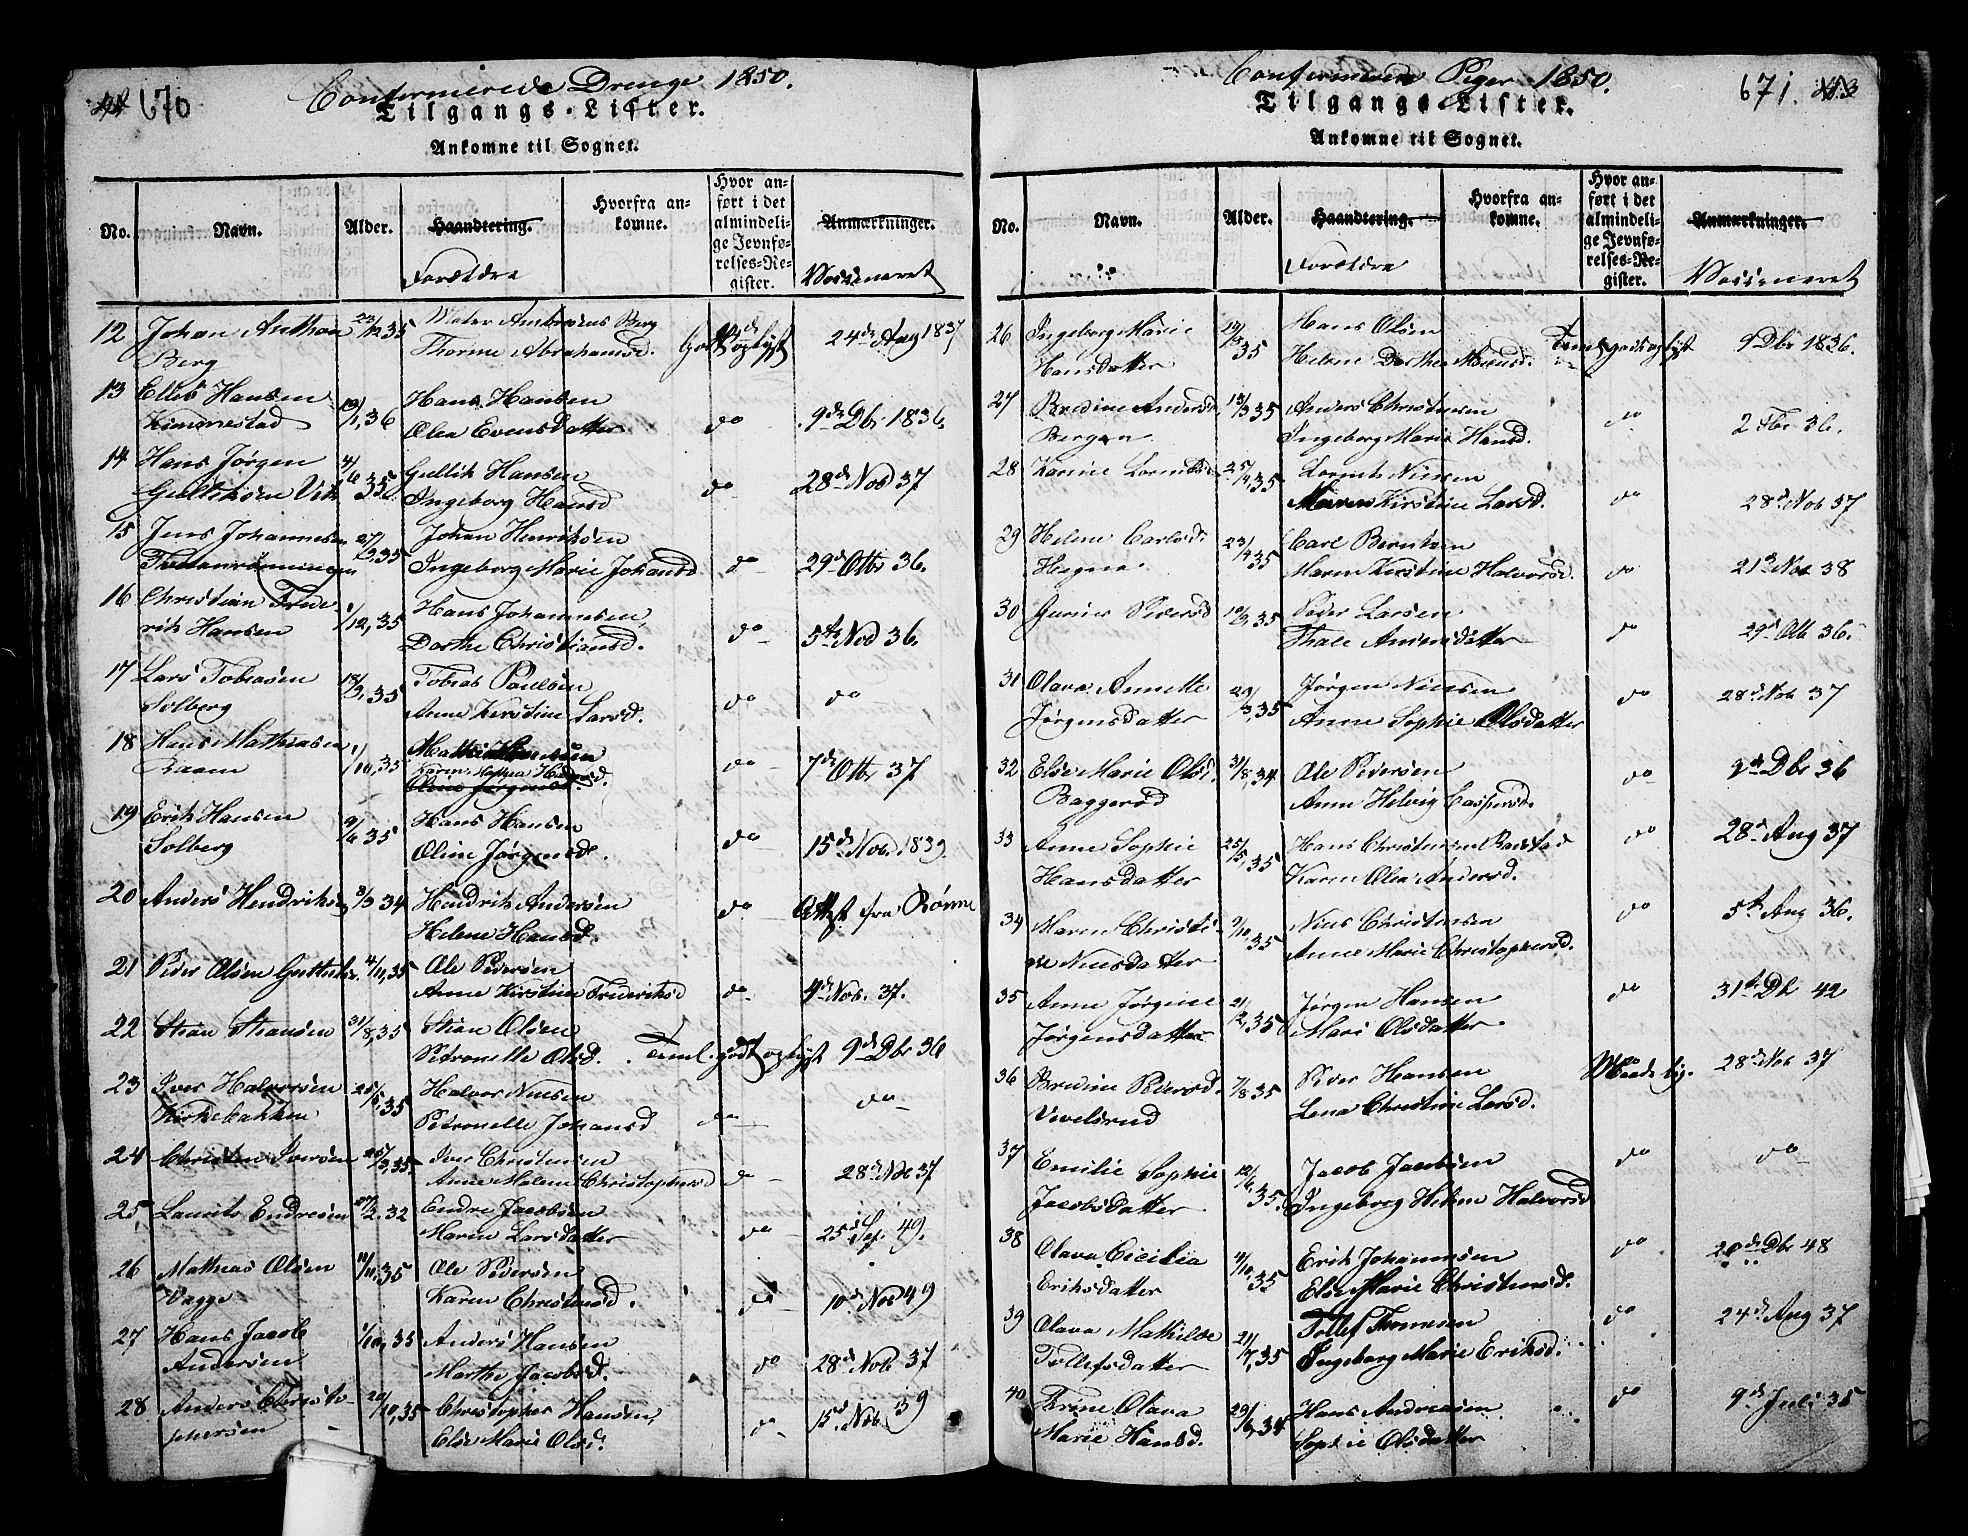 670
Confermerede Drenge 1850.
Tilgangs-Lister.
Ankomne til Sognet.
No. Navn. Alder. Haandtering. Forældre Hvorfra ankomne. Hvor anført i det almindelige Jevnførelses-Register. Anmærkninger. Vaccineret
12 Johan Anthon 23/12 35 Abrahamsd. 24de Aug 1837
Berg
13 Elles Hansen 13/1, 36 Hans Hansen do 9de Dbr 1836.
Kimmestad Olea Evensdatter
14 Hans Jørgen 4/6 35 Gullik Hansen do 28de Nov 37
Gulliksen Vik Ingeborg Hansd
15 Jens Johannesen 27/ 35 Johan Henriksen do 29de Otbr 36.
Ingeborg Marie Johansd
16 Christian Frede 1/12, 35 Hans Johannesen, do 5te Nov 36.
rik Hansen Dorthe Christiansd.
17 Lars Tobiasen 18/9, 35 Tobias Paulsen do do
Solberg Anne Kirstine Larsd.
18 Hans Mathiasen 1/10, 35 do 7de Otbr 37
Raaen Karen
Oline Jørgensd.
19 Erik Hansen 9/6 35 Hans Hansen do 15de Nov. 1839.
Solberg Oline Jørgensd.
20 Anders Hendriksen 3/3 34 Hendrik Andersen do Attest fra Rønne
Helene Hansd.
21 Peder Olsen 4/11, 35 Ole Pedersen do 4de Nov. 37.
Anne Kirstine Frederiksd
22 Stian Stiansen 31/8, 35 Stian Olsen Teml. godt oplyst 9de Dbr 36
Petronelle Olsd.
23 Iver Halvorsen 25/5, 35 Halvor Nielsen do do
Kirkebakken Petronelle Johansd
24 Christen Iversen 25/3, 35 Iver Christensen do 28de Nov 37
Anne Malene Christophersd
25 Lauritz Endresen 27/2, 32 Endre Jacobsen do 25de Sep. 49.
Maren Larsdatter
26 Mathias Olsen 11/11, 35 Ole Pedersen do 10de Nov 49
Vagge Karen Christensd.
27 Hans Jacob 1/10, 35 Anders Hansen do 28de Nov 37
Andersen Marthe Jacobsd.
28 Anders Christo- 20/10, 35 Christopher Hansen, do 15de Nov. 39
phersen Else Marie Olsd.
Confermerede Piger 1850.
671.
Tilgangs-Lister.
Ankomne til Sognet.
No. Navn. Alder. Haandtering. Forældre Hvorfra ankomne. Hvor anført i det almindelige Jevnførelses-Register. Anmærkninger. Vaccineret
26 Ingeborg Marie 19/3 35 Hans Olsen 9 Dbr 1836.
Hansdatter Helene Dorthea
27 Bredine Andersd 13/3 35 Anders Christensen do 2 Fbr 36.
Bergan Ingeborg Marie Hansd.
28 Karine Lorentsd 25/4, 35 Lorents Nielsen do 28de Nov 37
Maren Kirstine Larsd.
29 Helene Carlsd. 23/4 35 Carl Berntsen do 21de Nov 38
Haugene Maren Kirstine Halvorsd.
30 Gunine Pedersd 10/3, 35 Peder Larsen do 29de Otb 36.
Thale Andersdatter
31 Olava Annette 29/3, 35 Jørgen Nielsen do 28de Nov 37
Jørgensdatter Anne Sophie Olsdatter
32 Else Marie Olsd. 31/8, 34 Ole Pedersen do 9de Dbr 36
Baggerød Anne Helvig Caspersd.
33 Anne Sophie 25/5, 35 Hans Christensen do 28de Aug 37
Hansdatter Karen Olea Andersd.
34 Maren Christi- 9/10, 35 Niels Christensen do 5te Aug 36.
ne Nielsdatter Anne Marie Christophersd.
35 Anne Jørgine 21/2, 35 Jørgen Hansen do 31te Db 42
Jørgensdatter Mari Olsdatter
36 Bredine Pedersd. 7/8 35 Peder Hansen Maadelig. 28de Nov 37
Vivelsrud Lena Christine Larsd.
37 Emilie Sophie 12/6, 35 Jacob Jacobsen do do
Jacobsdatter Ingeborg Helene Halvorsd
38 Olava Cicilia 11/10, 35 Erik Johannesen do 20de Db 48
Eriksdatter Else Marie Christensd.
39 Olava Mathilde 21/7, 35 Tollef Thomesen do 24de Aug 37
Tollefsdatter Ingeborg Marie Eriksd.
40 Trine Olava 29/6, 34 Hans Andreasen do 9de Juli 35
Marie Hansd. Sophie Olsdatter